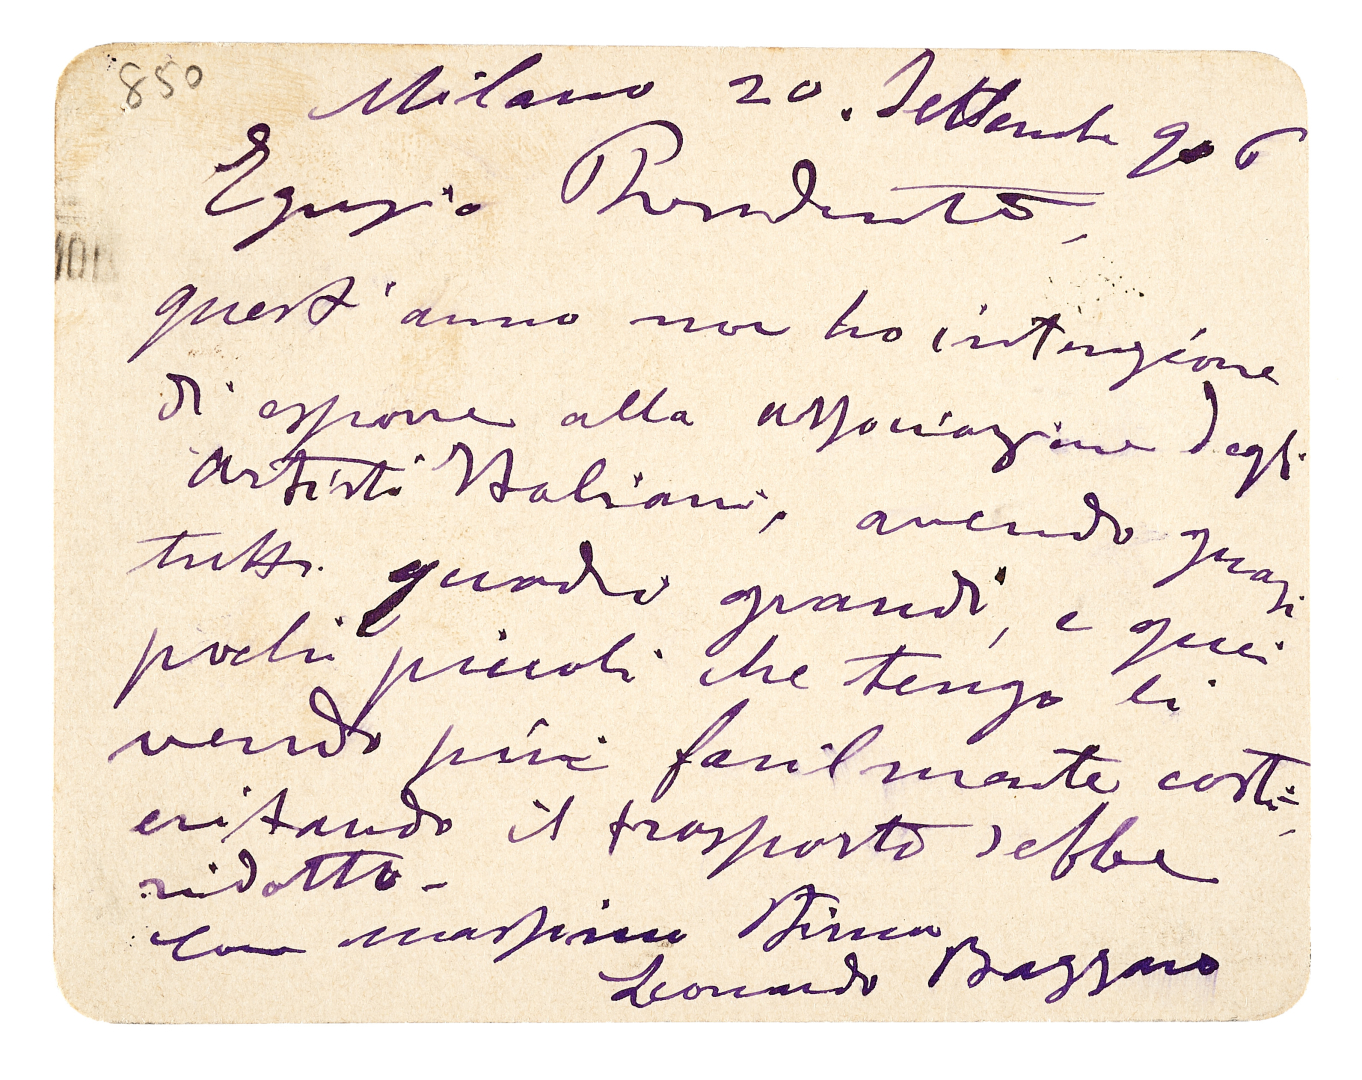 850
Milano 20. Settembre 906
Egregio Presidente,
quest'anno non ho intenzione
di esporre alla associazione degli
artisti Italiani, avendo quasi
tutti quadri grandi, e quei
pochi piccoli che tengo li
vendo più facilmente costì,
evitando il trasporto sebbe
ridotto.
Con massima stima
Leonardo Bazzaro